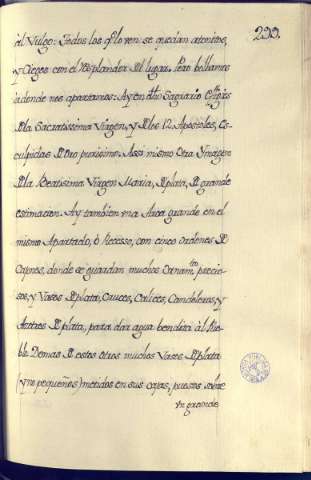 290.
àl Vulgo: Todos los q̃ lo ven se quedan atonitos,
y Ciegos con el resplandor Dl lugar. Pero bolbamos
à donde nos apartamos: Ay en dho Sagrario Efigies
Dla Sacratissima Virgen, y Dlos 12 Apostoles, es-
culpidas D Oro purissimo. Assi mismo Otra Ymagen
Dla Beatisima Virgen Maria, D plata, D grande
estimacion. Ay tambien vna Arca grande en el
mismo Apartado, ò Recesso, con cinco ordenes D
Caxones, donde se guardan muchos Ornam.tos precio-
sos, y Vasos D plata, Cruces, Calices, Candeleros, y
Acetres D plata, para dar agua bendita àl Pue-
blo. Demas D estos otros muchos Vasos D plata
(y no pequeños) metidos en sus cajas, puestos sobre
vn grande